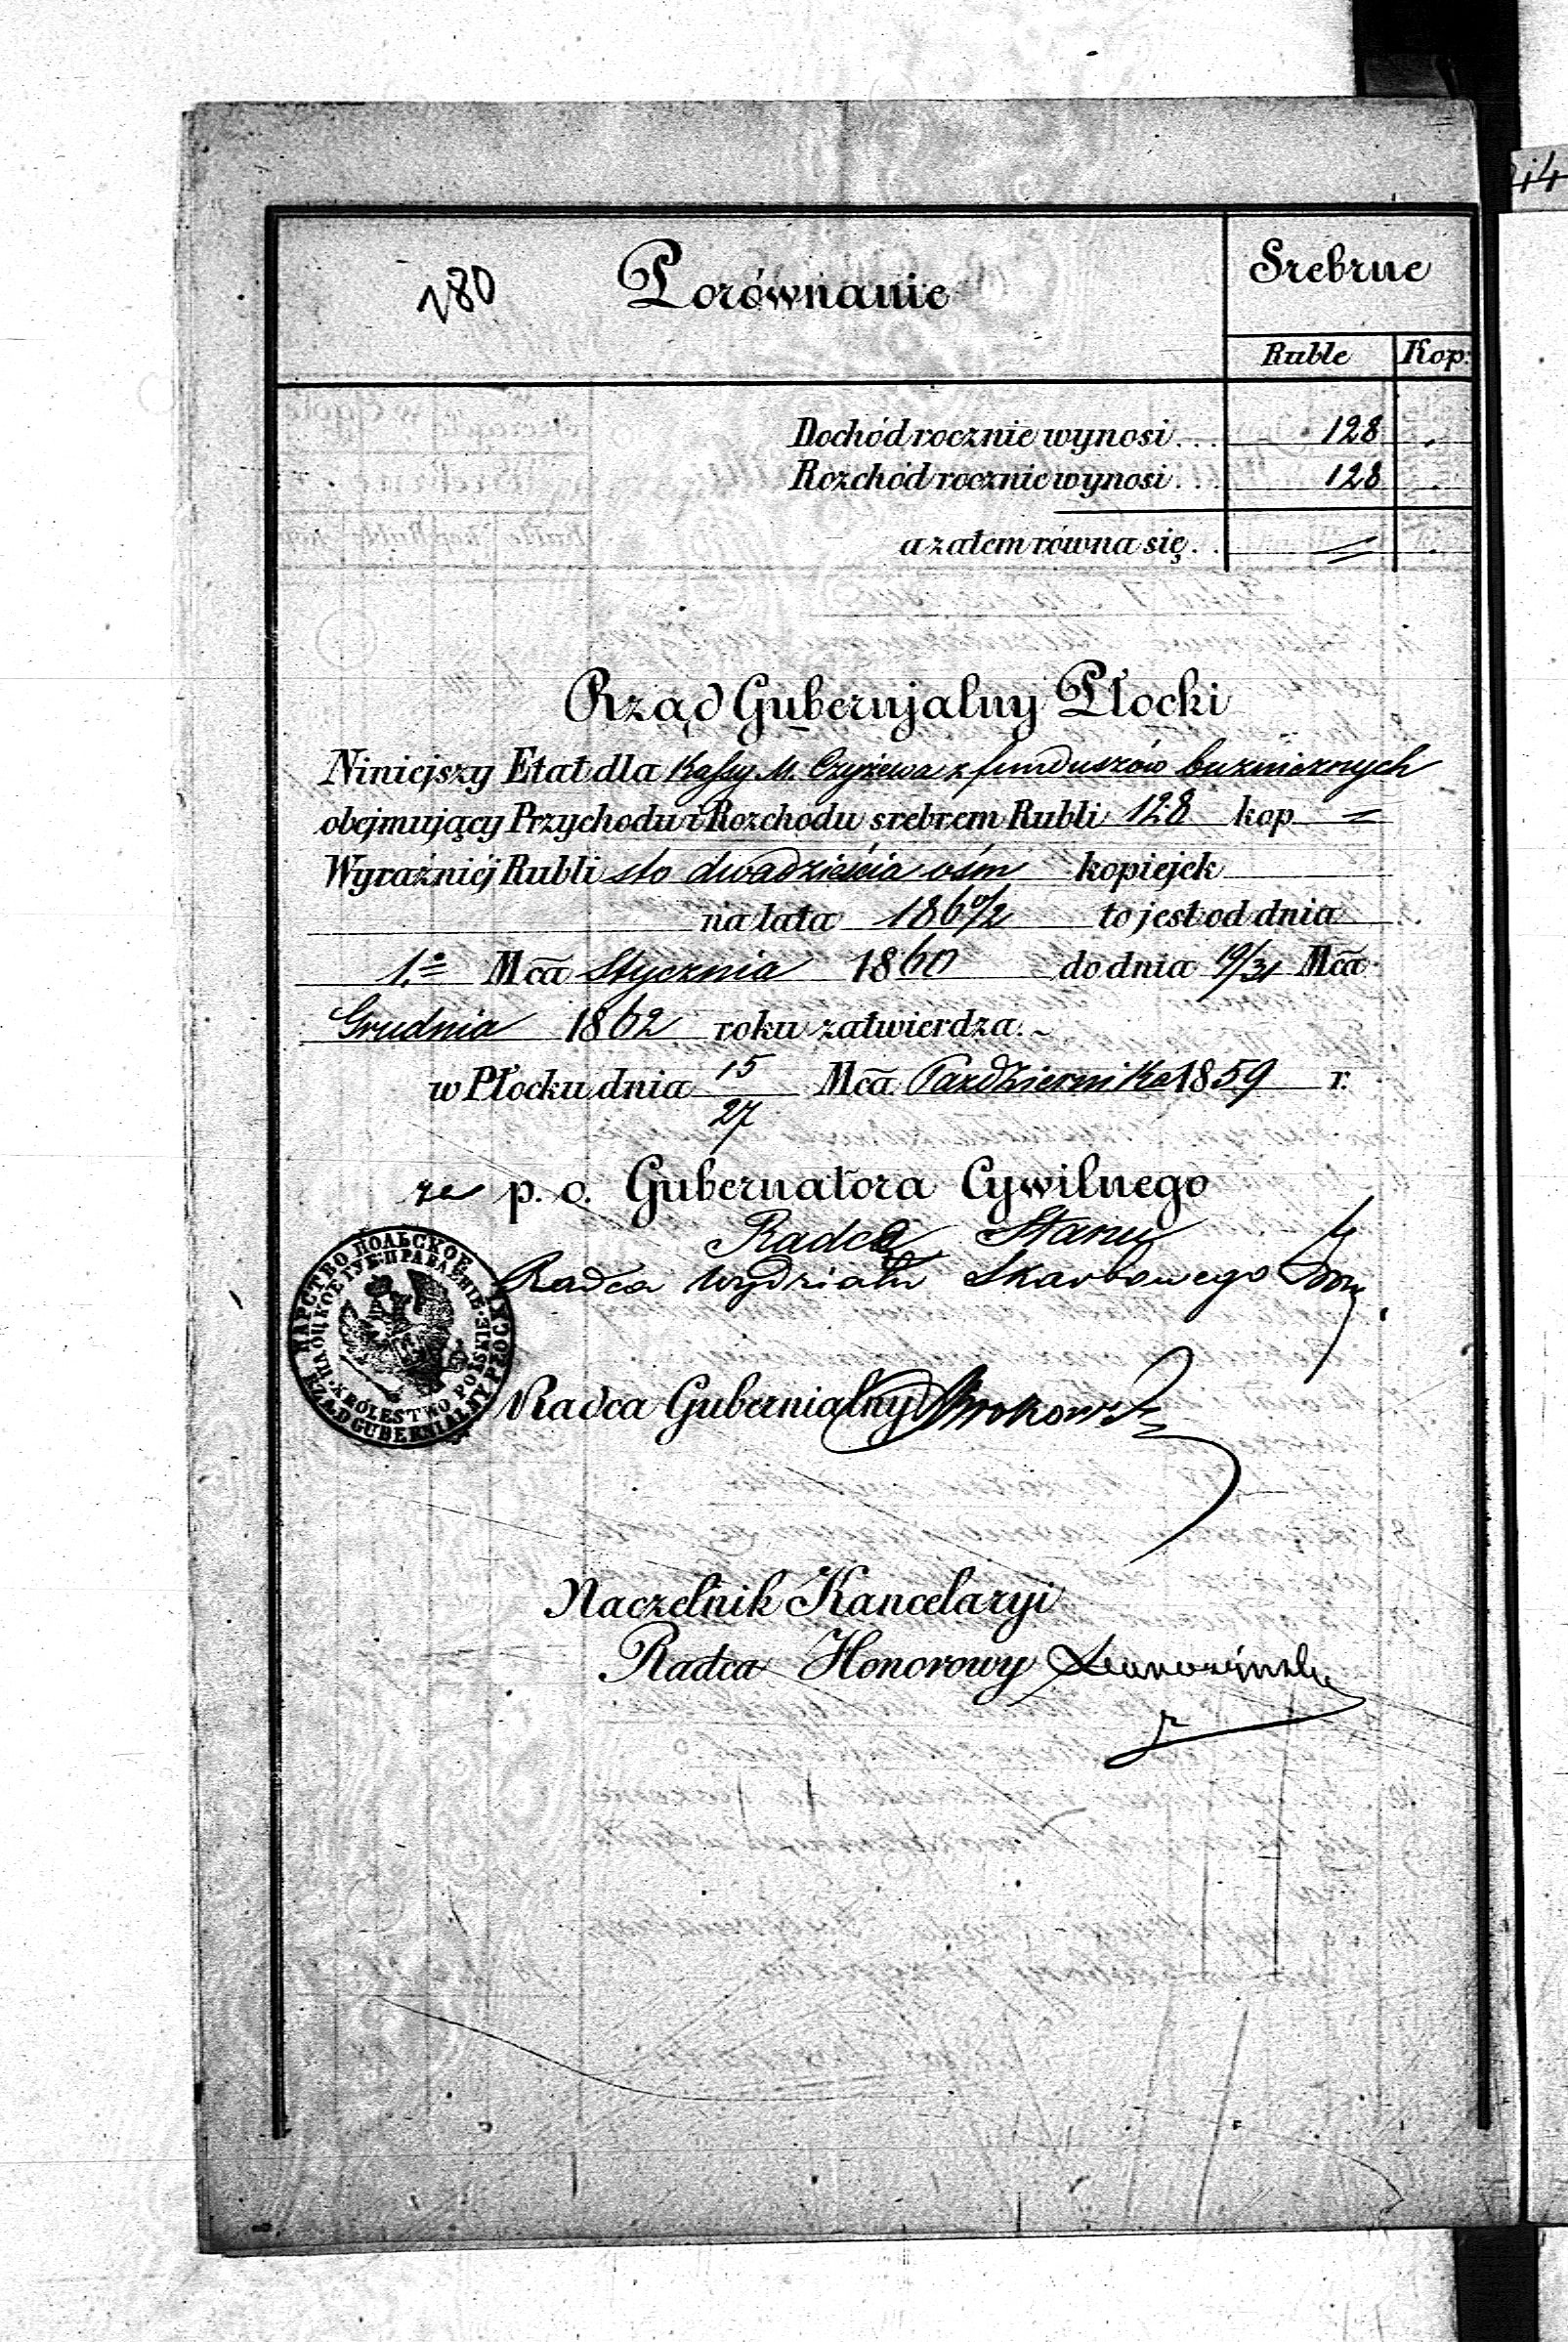 180
Porównanie
Srebrne
Ruble Kop:
Dochód rocznie wynosi... 128 .
Rozchód rocznie wynosi... 128 .
a zatem równa się.. =
Rząd Gubernjalny Płocki
Niniejszy Etat dla Kassy M. Czyżewa z funduszów bużnicznych
obejmujący Przychodu i Rozchodu srebrem Rubli 128 kop =
Wyraźniéj Rubli sto dwadzieścia ośm kopiejek
na lata 1860/2 to jest od dnia
1.º Mca Stycznia 1860 do dnia 19/31 Mca
Grudnia 1862 roku zatwierdza.~
w Płocku dnia 15/27 Mca Pazdziernika 1859 r.
za p. o. Gubernatora Cywilnego
Radca Stanu
Radca Wydziału Skarbowego
ЦАРСТВО ПОЛЬСКОЕ
ПЛОЦКОЕ ГУБ: ПРАВЛЕНІЕ
KRÓLESTWO POLSKIE
RZĄD GUBERNIALNY PŁOCKI
Radca Gubernialny
Naczelnik Kancelaryi
Radca Honorowy